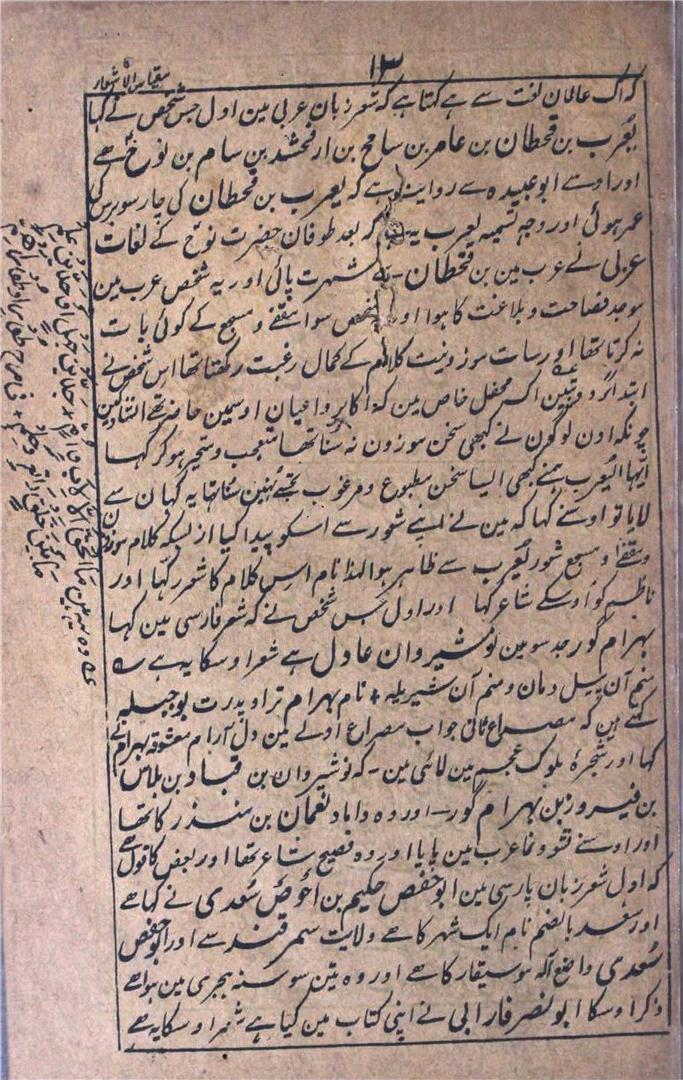 ۱۳
مقیاس الاشعار
کہ اک عالمان لغت سے ہے کہتا ہے کہ شعر زبان عربی مین اول جس شخص نے کہا
یعرب بن قحطان بن عامر بن سامخ بن ارفخشد بن سام بن نوح ہے
اور اوسے ابو عبیدہ سے روایت ہے کہ یعرب بن قحطان کی چار سو برس کی
عمر ہوئی اور وجہ تسمیہ یعرب یہ کہ بعد طوفان حضرت نوح کے لغات
عربی نے عرب مین بن قحطان سے شہرت پائی اور یہ شخص عرب مین
موجد فصاحت و بلاغت کا ہوا اور شخص سوا مقفے و مسجع کے کوئی بات
نہ کرتا تھا اور سات موزونیت کلام کے کمال رغبت رکھتا تھا اس شخص نے
ابتداءً دو بیتین اکسر محفل خاص مین کہ اکابر و اعیان اوسمین حاضر تھے انشاد کین
چونکہ اون لوگون نے کبھی سخن موزون نہ سنا تھا متعجب و متحیر ہو کر کہا
ایہا الیعرب ہمنے کبھی ایسا سخن مطبوع و مرغوب تجسے نہین سنا تھا یہ کہان سے
لایا تو اوسنے کہا کہ مین نے اپنے شعور سے اسکو پیدا کیا از بسکہ کلام موزون
و مقفے و مسجع شعور یعرب سے ظاہر ہوا لہذا نام اس کلام کا شعر رکہا اور
ناظم کو اوسکے شاعر کہا اور اول جس شخص نے کہ شعر فارسی مین کہا
بہرام گور جد سومین نوشیروان عادل ہے شعر اوسکا یہ ہے ؎
منم آن پیل دمان و منم آن شیر یلہ + نام بہرام ترا و پدرت بوجبلہ
کہتے ہین کہ مصراع ثانی جواب مصراع اولے مین دل آرام معشوقہ بہرام نے
کہا اور شجرۂ ملوک عجم مین لائی مین ۔ کہ نوشیروان بن قباد بن بلاس
بن فیروز بن بہرام گور ۔ اور وہ داماد نعمان بن منذر کا تھا
اور اوسنے نشو و نما عرب مین پایا اور وہ فصیح شاعر تھا اور بعض کا قول ہے
کہ اول شعر زبان پارسی مین ابو حفص حکیم بن احوص سُعدی نے کہا ہے
اور سغد بالضم نام ایک شہر کا ہے ولایت سمرقند سے اور ابو حفص
سُعدی واضع آلہ موسیقار کا ہے اور وہ تین سو سنہ ہجری مین ہوا ہے
ذکر اوسکا ابو نصر فارابی نے اپنی کتاب مین کیا ہے شعر اوسکا یہ ہے